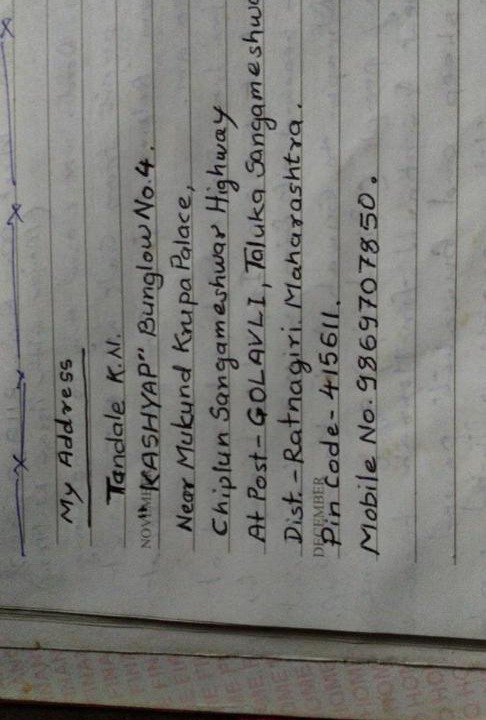 My Address
Tandale K.N.
"KASHYAP" Bunglow No.4.
NOVEMBER
Near Mukund Krupa Palace,
Chiplun Sangameshwar Highway
At Post-GOLAVLI, Taluka Sangameshwa
Dist.-Ratnagiri. Maharashtra.
DECEMBER
Pin Code-415611.
Mobile No. 9869707850.